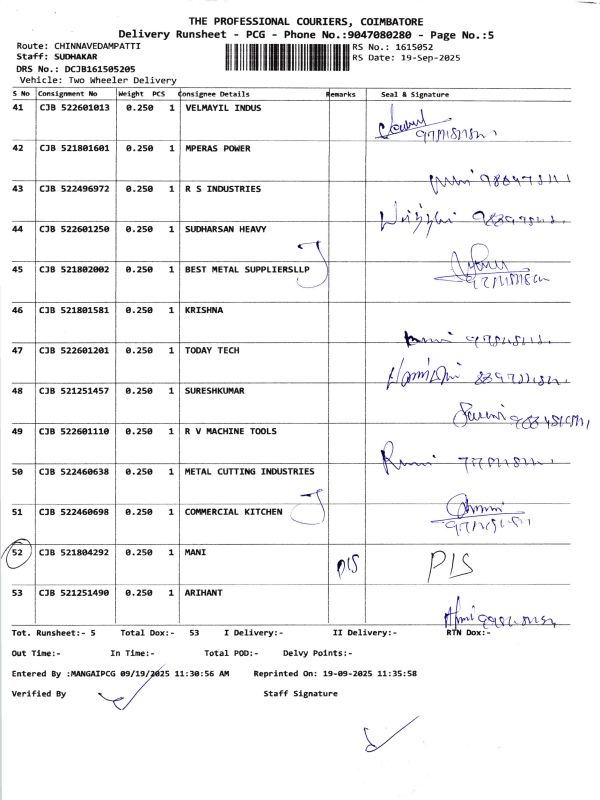 THE PROFESSIONAL COURIERS, COIMBATORE
Delivery Runsheet - PCG - Phone No.:9047080280 - Page No.:5
Route: CHINNAVEDAMPATTI
RS No.: 1615052
Staff: SUDHAKAR
RS Date: 19-Sep-2025
DRS No.: DCJB161505205
Vehicle: Two Wheeler Delivery
S No Consignment No Weight PCS Consignee Details Remarks Seal & Signature
41 CJB 522601013 0.250 1 VELMAYIL INDUS
42 CJB 521801601 0.250 1 MPERAS POWER
43 CJB 522496972 0.250 1 R S INDUSTRIES
44 CJB 522601250 0.250 1 SUDHARSAN HEAVY
45 CJB 521802002 0.250 1 BEST METAL SUPPLIERSLLP
46 CJB 521801581 0.250 1 KRISHNA
47 CJB 522601201 0.250 1 TODAY TECH
48 CJB 521251457 0.250 1 SURESHKUMAR
49 CJB 522601110 0.250 1 R V MACHINE TOOLS
50 CJB 522460638 0.250 1 METAL CUTTING INDUSTRIES
51 CJB 522460698 0.250 1 COMMERCIAL KITCHEN
52 CJB 521804292 0.250 1 MANI PIS PIS
53 CJB 521251490 0.250 1 ARIHANT
Tot. Runsheet:- 5 Total Dox:- 53 I Delivery:- II Delivery:- RTN Dox:-
Out Time:- In Time:- Total POD:- Delvy Points:-
Entered By :MANGAIPCG 09/19/2025 11:30:56 AM Reprinted On: 19-09-2025 11:35:58
Verified By Staff Signature